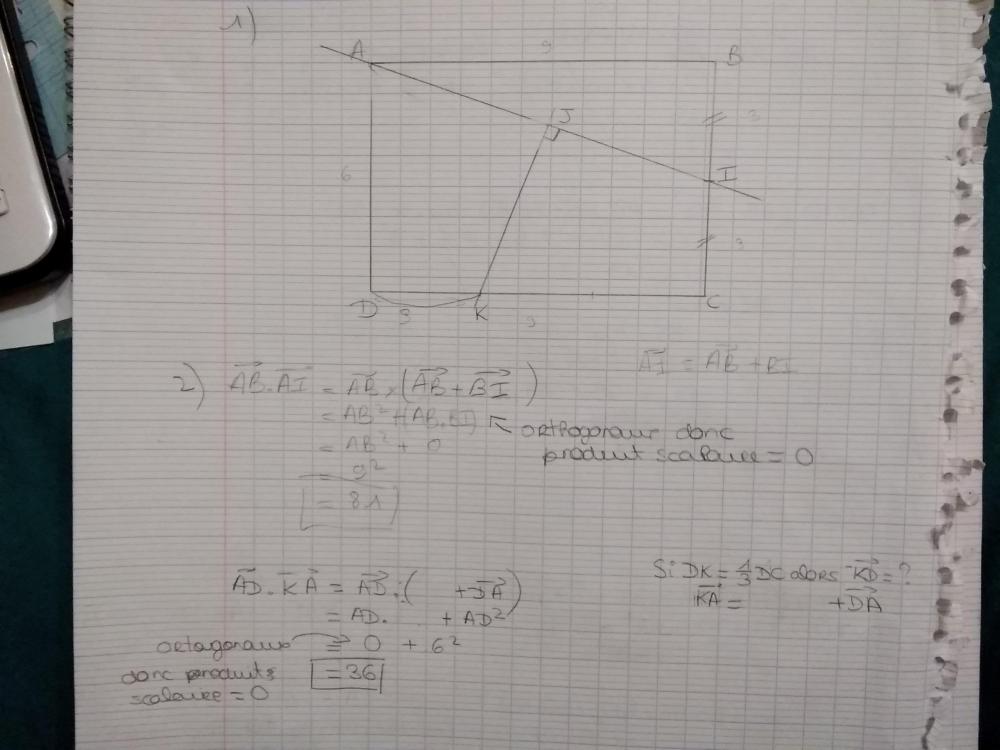 1)
A 9 B
J
3
6
I
3
D 3 K 9 C
2) AB.AI = AB.(AB+BI) AI = AB + BI
= AB² + (AB.BI) ← orthogonaux donc
produit scalaire = 0
= AB² + 0
= 9²
= 81
Si DK = 4/3 DC alors KD = ?
AD.KA = AD.( +DA) KA = +DA
= AD. + AD²
ortogonaux → = 0 + 6²
donc produits = 36
scalaire = 0